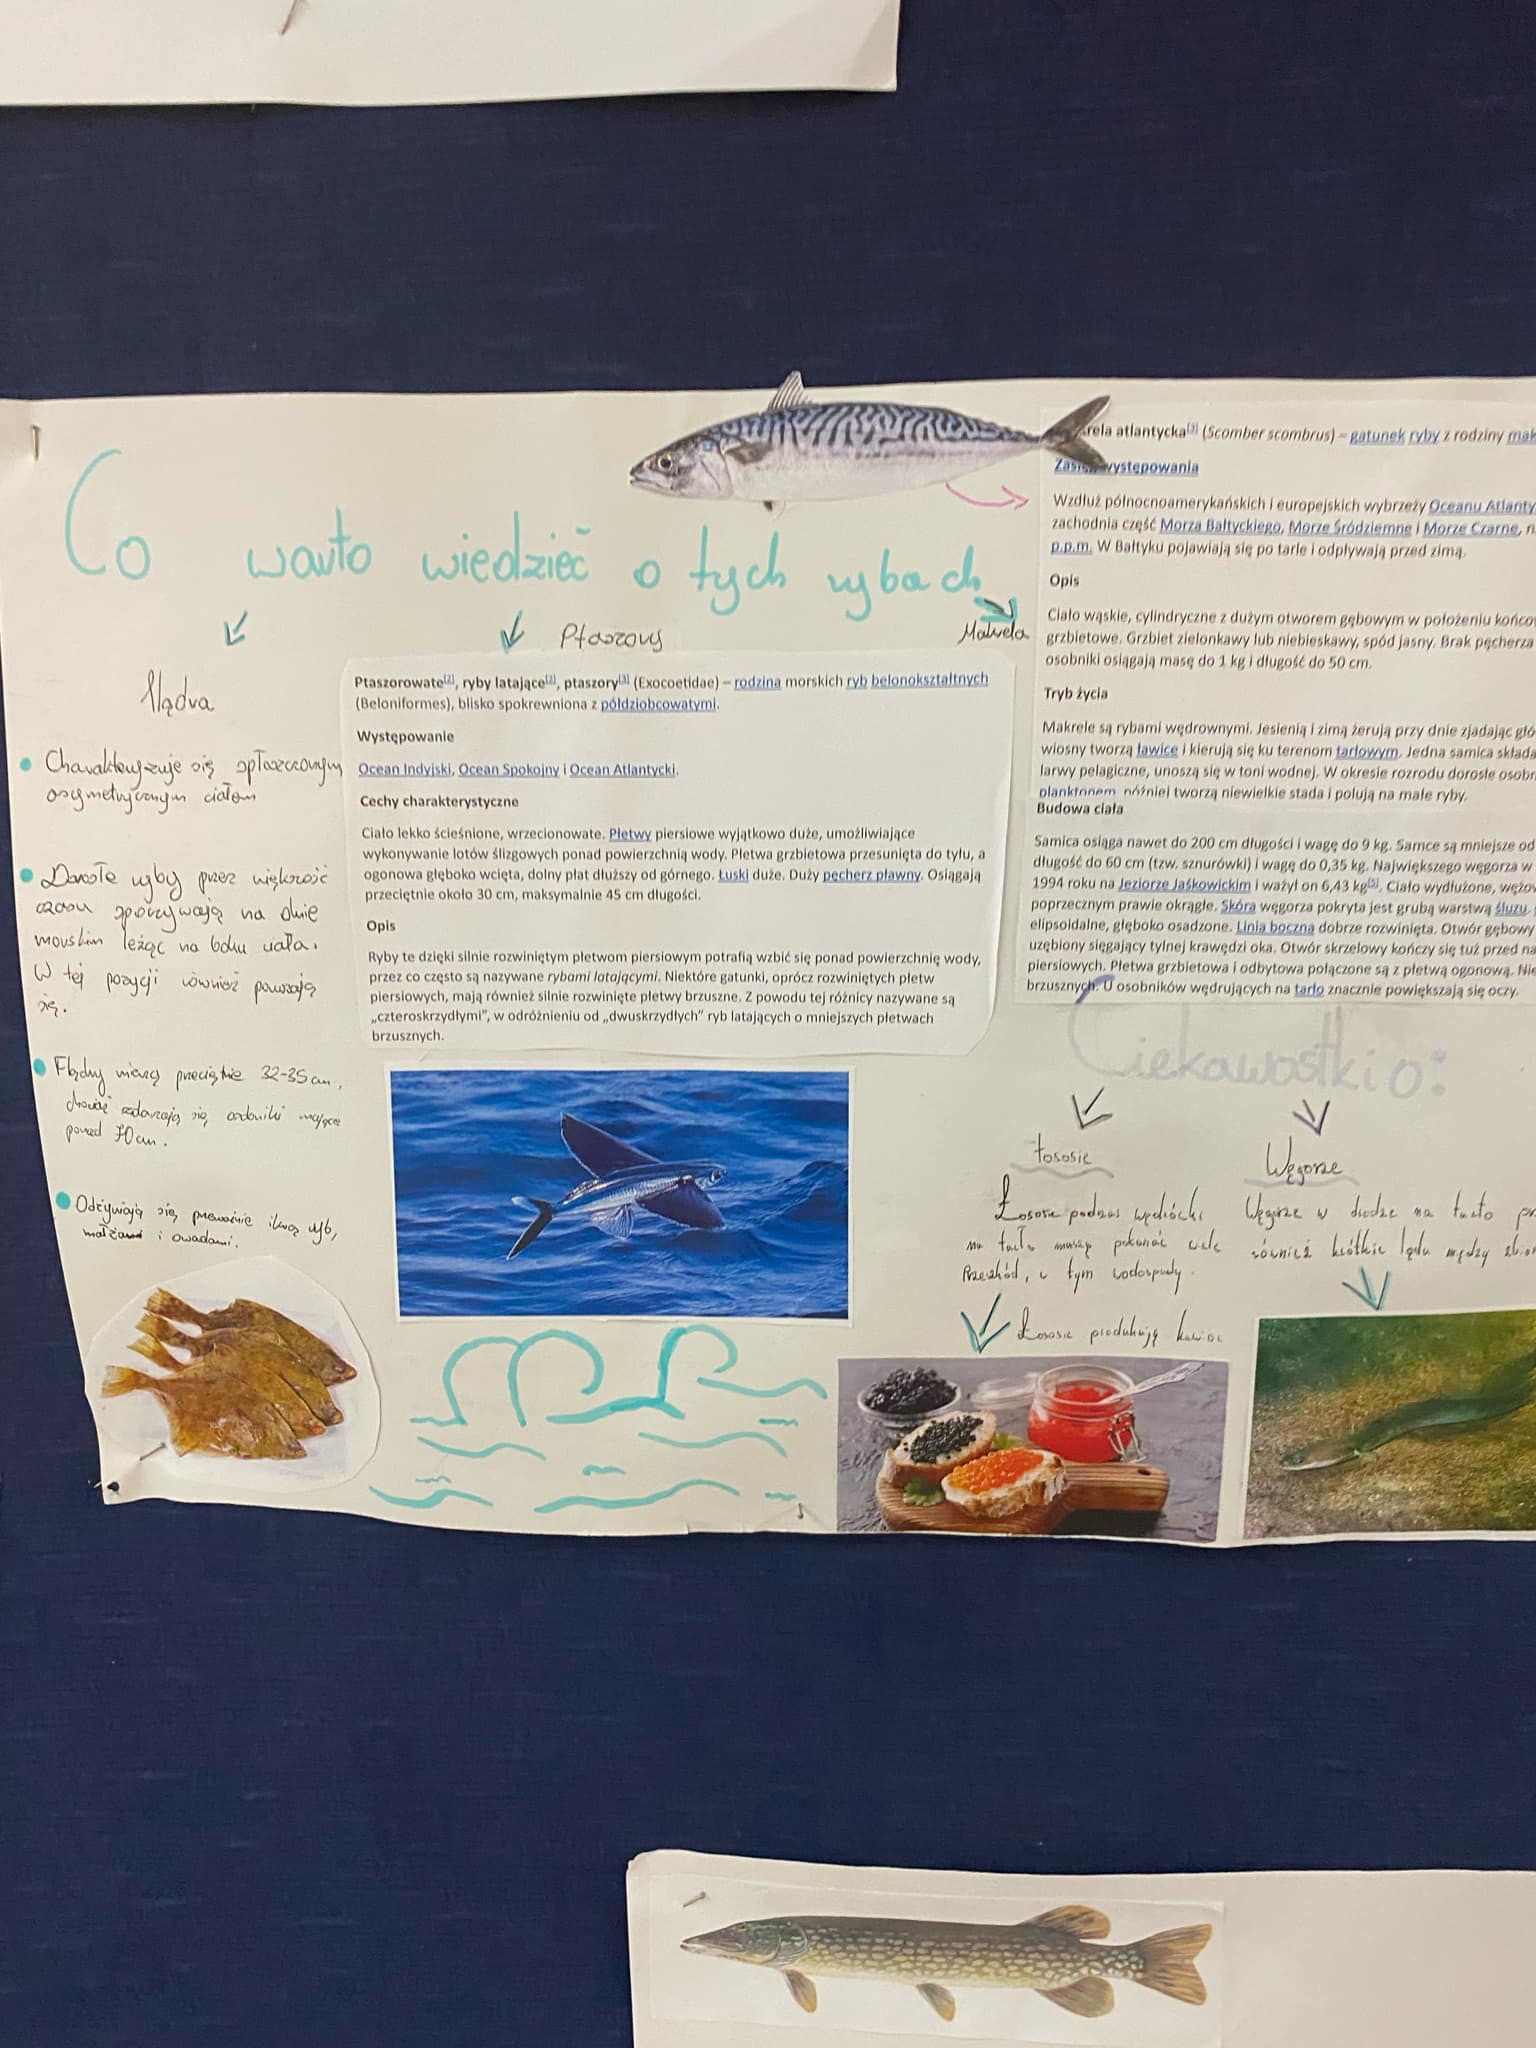 Co warto wiedzieć o tych rybach
flądra
Charakteryzuje się spłaszczonym
asymetrycznym ciałem
Dorosłe ryby przez większość
czasu spoczywają na dnie
morskim leżąc na boku ciała.
W tej pozycji również poruszają
się.
Flądry mierzą przeciętnie 32-35 cm,
chociaż zdarzają się osobniki mające
ponad 70 cm.
Odżywiają się przeważnie ikrą ryb,
małżami i owadami.
Ptaszory
Ptaszorowate[2], ryby latające[2], ptaszory[3] (Exocoetidae) – rodzina morskich ryb belonokształtnych
(Beloniformes), blisko spokrewniona z półdziobcowatymi.
Występowanie
Ocean Indyjski, Ocean Spokojny i Ocean Atlantycki.
Cechy charakterystyczne
Ciało lekko ścieśnione, wrzecionowate. Płetwy piersiowe wyjątkowo duże, umożliwiające
wykonywanie lotów ślizgowych ponad powierzchnią wody. Płetwa grzbietowa przesunięta do tyłu, a
ogonowa głęboko wcięta, dolny płat dłuższy od górnego. Łuski duże. Duży pęcherz pławny. Osiągają
przeciętnie około 30 cm, maksymalnie 45 cm długości.
Opis
Ryby te dzięki silnie rozwiniętym płetwom piersiowym potrafią wzbić się ponad powierzchnię wody,
przez co często są nazywane rybami latającymi. Niektóre gatunki, oprócz rozwiniętych płetw
piersiowych, mają również silnie rozwinięte płetwy brzuszne. Z powodu tej różnicy nazywane są
„czteroskrzydłymi”, w odróżnieniu od „dwuskrzydłych” ryb latających o mniejszych płetwach
brzusznych.
Makrela
rela atlantycka[3] (Scomber scombrus) – gatunek ryby z rodziny mak
Zasięg występowania
Wzdłuż północnoamerykańskich i europejskich wybrzeży Oceanu Atlanty
zachodnia część Morza Bałtyckiego, Morze Śródziemne i Morze Czarne, n.
p.p.m. W Bałtyku pojawiają się po tarle i odpływają przed zimą.
Opis
Ciało wąskie, cylindryczne z dużym otworem gębowym w położeniu końco
grzbietowe. Grzbiet zielonkawy lub niebieskawy, spód jasny. Brak pęcherza
osobniki osiągają masę do 1 kg i długość do 50 cm.
Tryb życia
Makrele są rybami wędrownymi. Jesienią i zimą żerują przy dnie zjadając głó
wiosny tworzą ławice i kierują się ku terenom tarłowym. Jedna samica składa
larwy pelagiczne, unoszą się w toni wodnej. W okresie rozrodu dorosłe osobn
planktonem, później tworzą niewielkie stada i polują na małe ryby.
Budowa ciała
Samica osiąga nawet do 200 cm długości i wagę do 9 kg. Samce są mniejsze od
długość do 60 cm (tzw. sznurówki) i wagę do 0,35 kg. Największego węgorza w
1994 roku na Jeziorze Jaśkowickim i ważył on 6,43 kg[5]. Ciało wydłużone, wężow
poprzecznym prawie okrągłe. Skóra węgorza pokryta jest grubą warstwą śluzu,
elipsoidalne, głęboko osadzone. Linia boczna dobrze rozwinięta. Otwór gębowy
uzębiony sięgający tylnej krawędzi oka. Otwór skrzelowy kończy się tuż przed na
piersiowych. Płetwa grzbietowa i odbytowa połączone są z płetwą ogonową. Nie
brzusznych. U osobników wędrujących na tarło znacznie powiększają się oczy.
Ciekawostki o:
łososie
Łososie podczas wędrówki
na tarło muszą pokonać wiele
Przeszkód, w tym wodospady.
Łososie produkują kawior
Węgorze
Węgorze w drodze na tarło
również krótkie lądu między